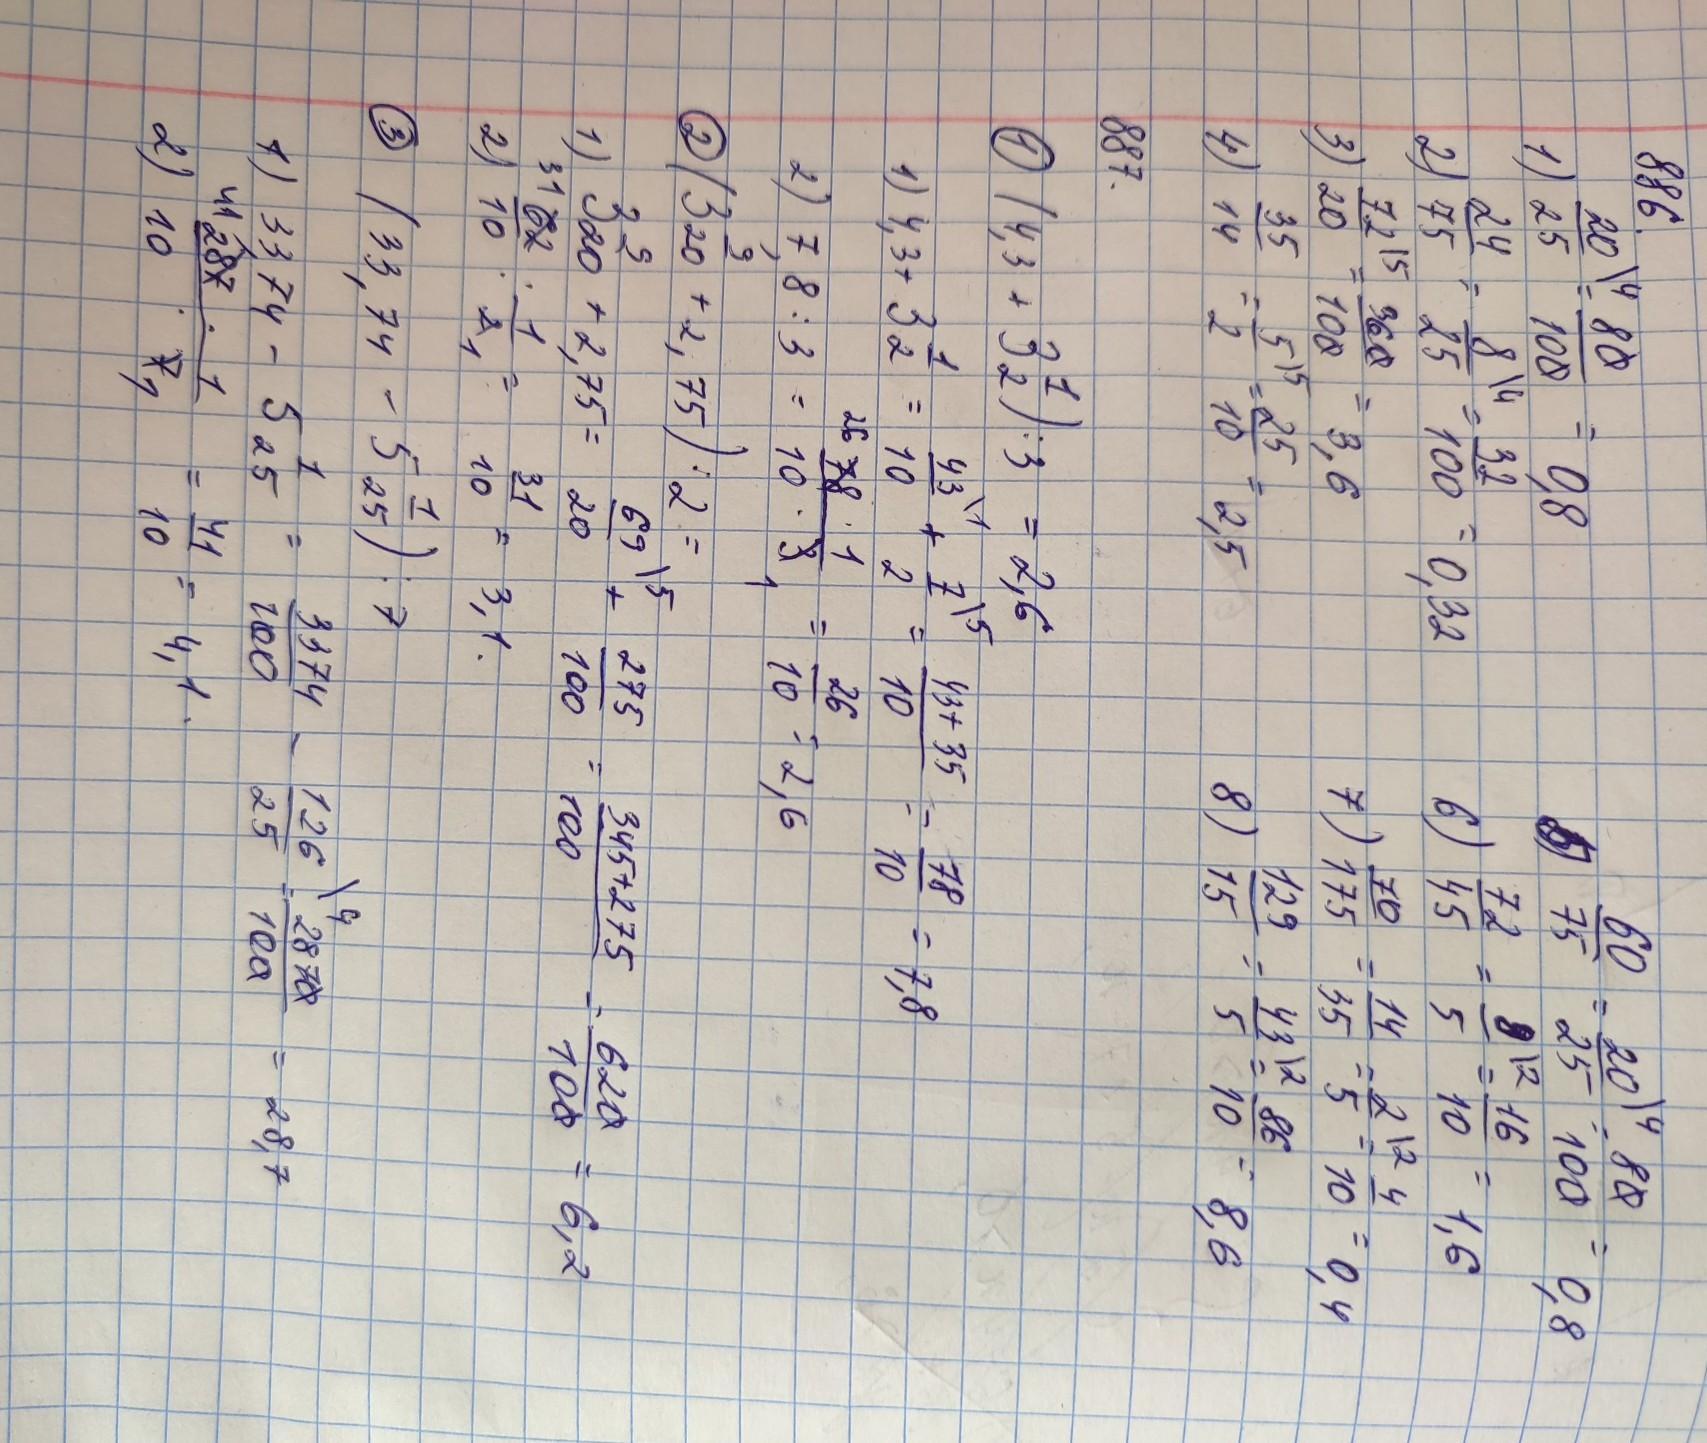 886.
1) 20/25 \4 = 80/100 = 0,8
2) 24/75 = 8/25 \4 = 32/100 = 0,32
3) 72/20 \5 = 360/100 = 3,6
4) 35/14 = 5/2 \5 = 25/10 = 2,5
60/75 = 20/25 \4 = 80/100 = 0,8
6) 72/45 = 8/5 \2 = 16/10 = 1,6
7) 70/175 = 14/35 = 2/5 \2 = 4/10 = 0,4
8) 129/15 = 43/5 \2 = 86/10 = 8,6
887.
① (4,3 + 3 1/2) : 3 = 2,6
1) 4,3 + 3 1/2 = 43/10 \1 + 7/2 \5 = 43+35/10 = 78/10 = 7,8
2) 7,8 : 3 = 26 78/10 · 1/3 1 = 26/10 = 2,6
② (3 9/20 + 2,75) : 2 =
1) 3 9/20 + 2,75 = 69/20 \5 + 275/100 = 345+275/100 = 620/100 = 6,2
2) 31 62/10 · 1/2 1 = 31/10 = 3,1.
③ (33,74 - 5 1/25) : 7
1) 33,74 - 5 1/25 = 3374/100 - 126/25 \4 = 2870/100 = 28,7
2) 41 287/10 · 1/7 1 = 41/10 = 4,1.